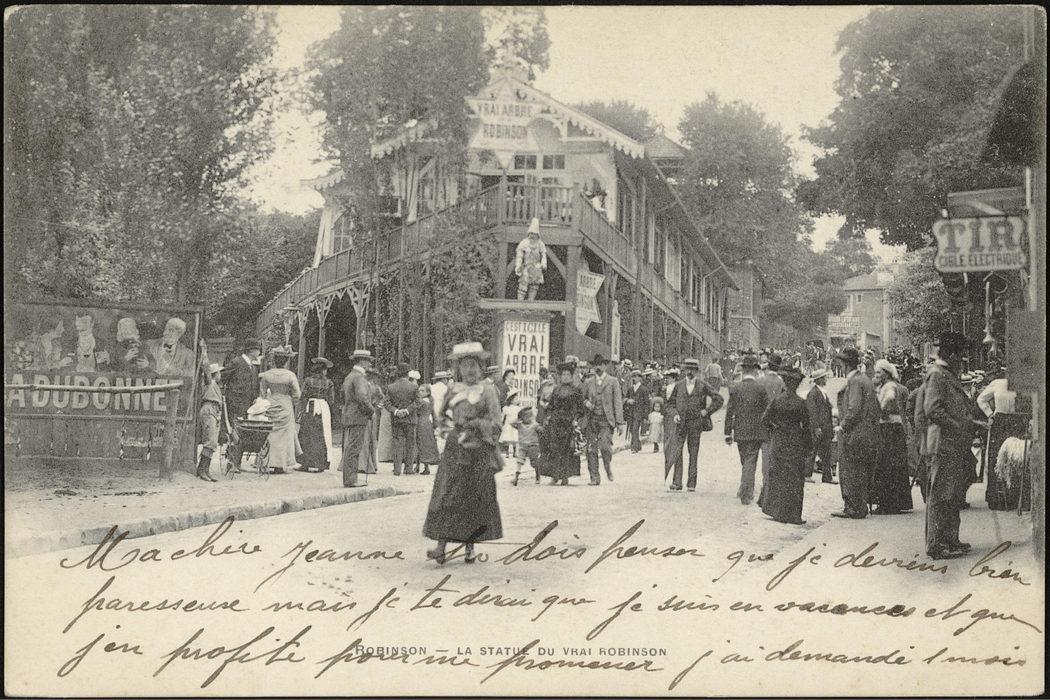 VRAI ARBRE
ROBINSON
ARBRE
ROBINSON
C'EST ICI LE
VRAI
ARBRE
ROBINSON
TIR
CIBLE ELECTRIQUE
A DUBONNE
Ma chère Jeanne tu dois penser que je deviens bien
paresseuse mais je te dirai que je suis en vacances et que
j'en profite pour me promener j'ai demandé 1 mois
ROBINSON — LA STATUE DU VRAI ROBINSON